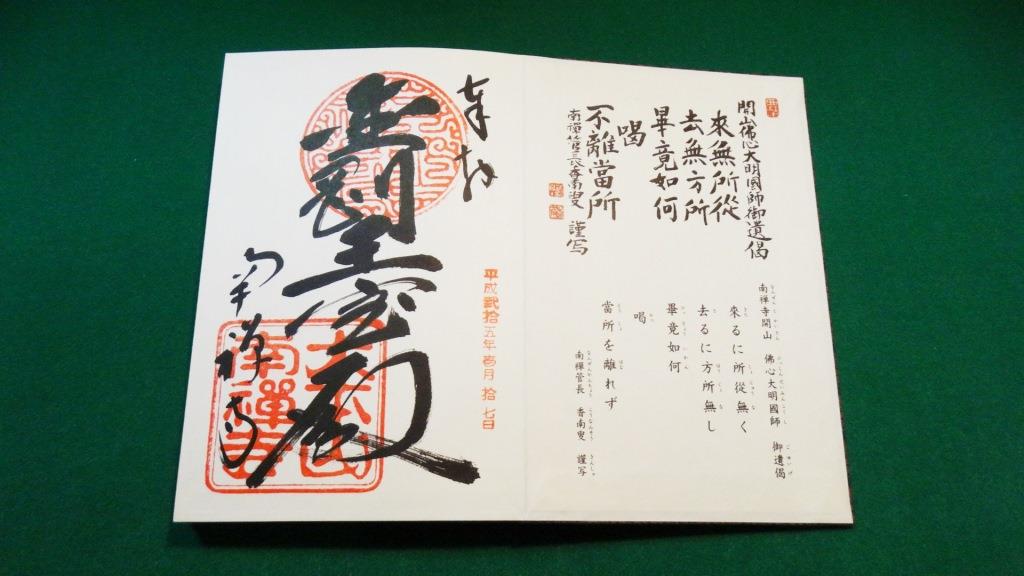 開山佛心大明國師御遺偈
來無所從
去無方所
畢竟如何
喝
不離當所
南禅管長香南叟 謹写
南禅寺開山 佛心大明國師 御遺偈
來るに所從無く
去るに方所無し
畢竟如何
喝
當所を離れず
南禅管長 香南叟 謹写
奉拝
平成弐拾五年壱月拾七日
金剛王宝殿
南禅寺
大本山
南禪寺